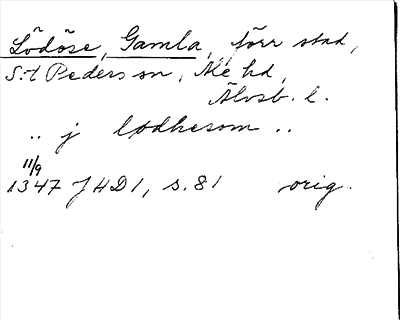 Lödöse, Gamla, förr stad,
S:t Peders sn, Ale hd,
Älvsb. l.
.. j lodhesom ..
11/9
1347 JHD 1, s. 81 orig.